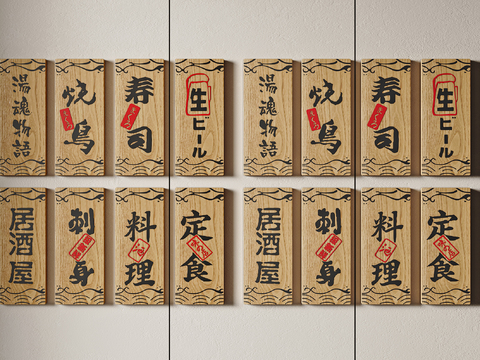 湯魂物語
焼鳥
寿司
生ビール
湯魂物語
焼鳥
寿司
生ビール
居酒屋
刺身
料理
定食
居酒屋
刺身
料理
定食